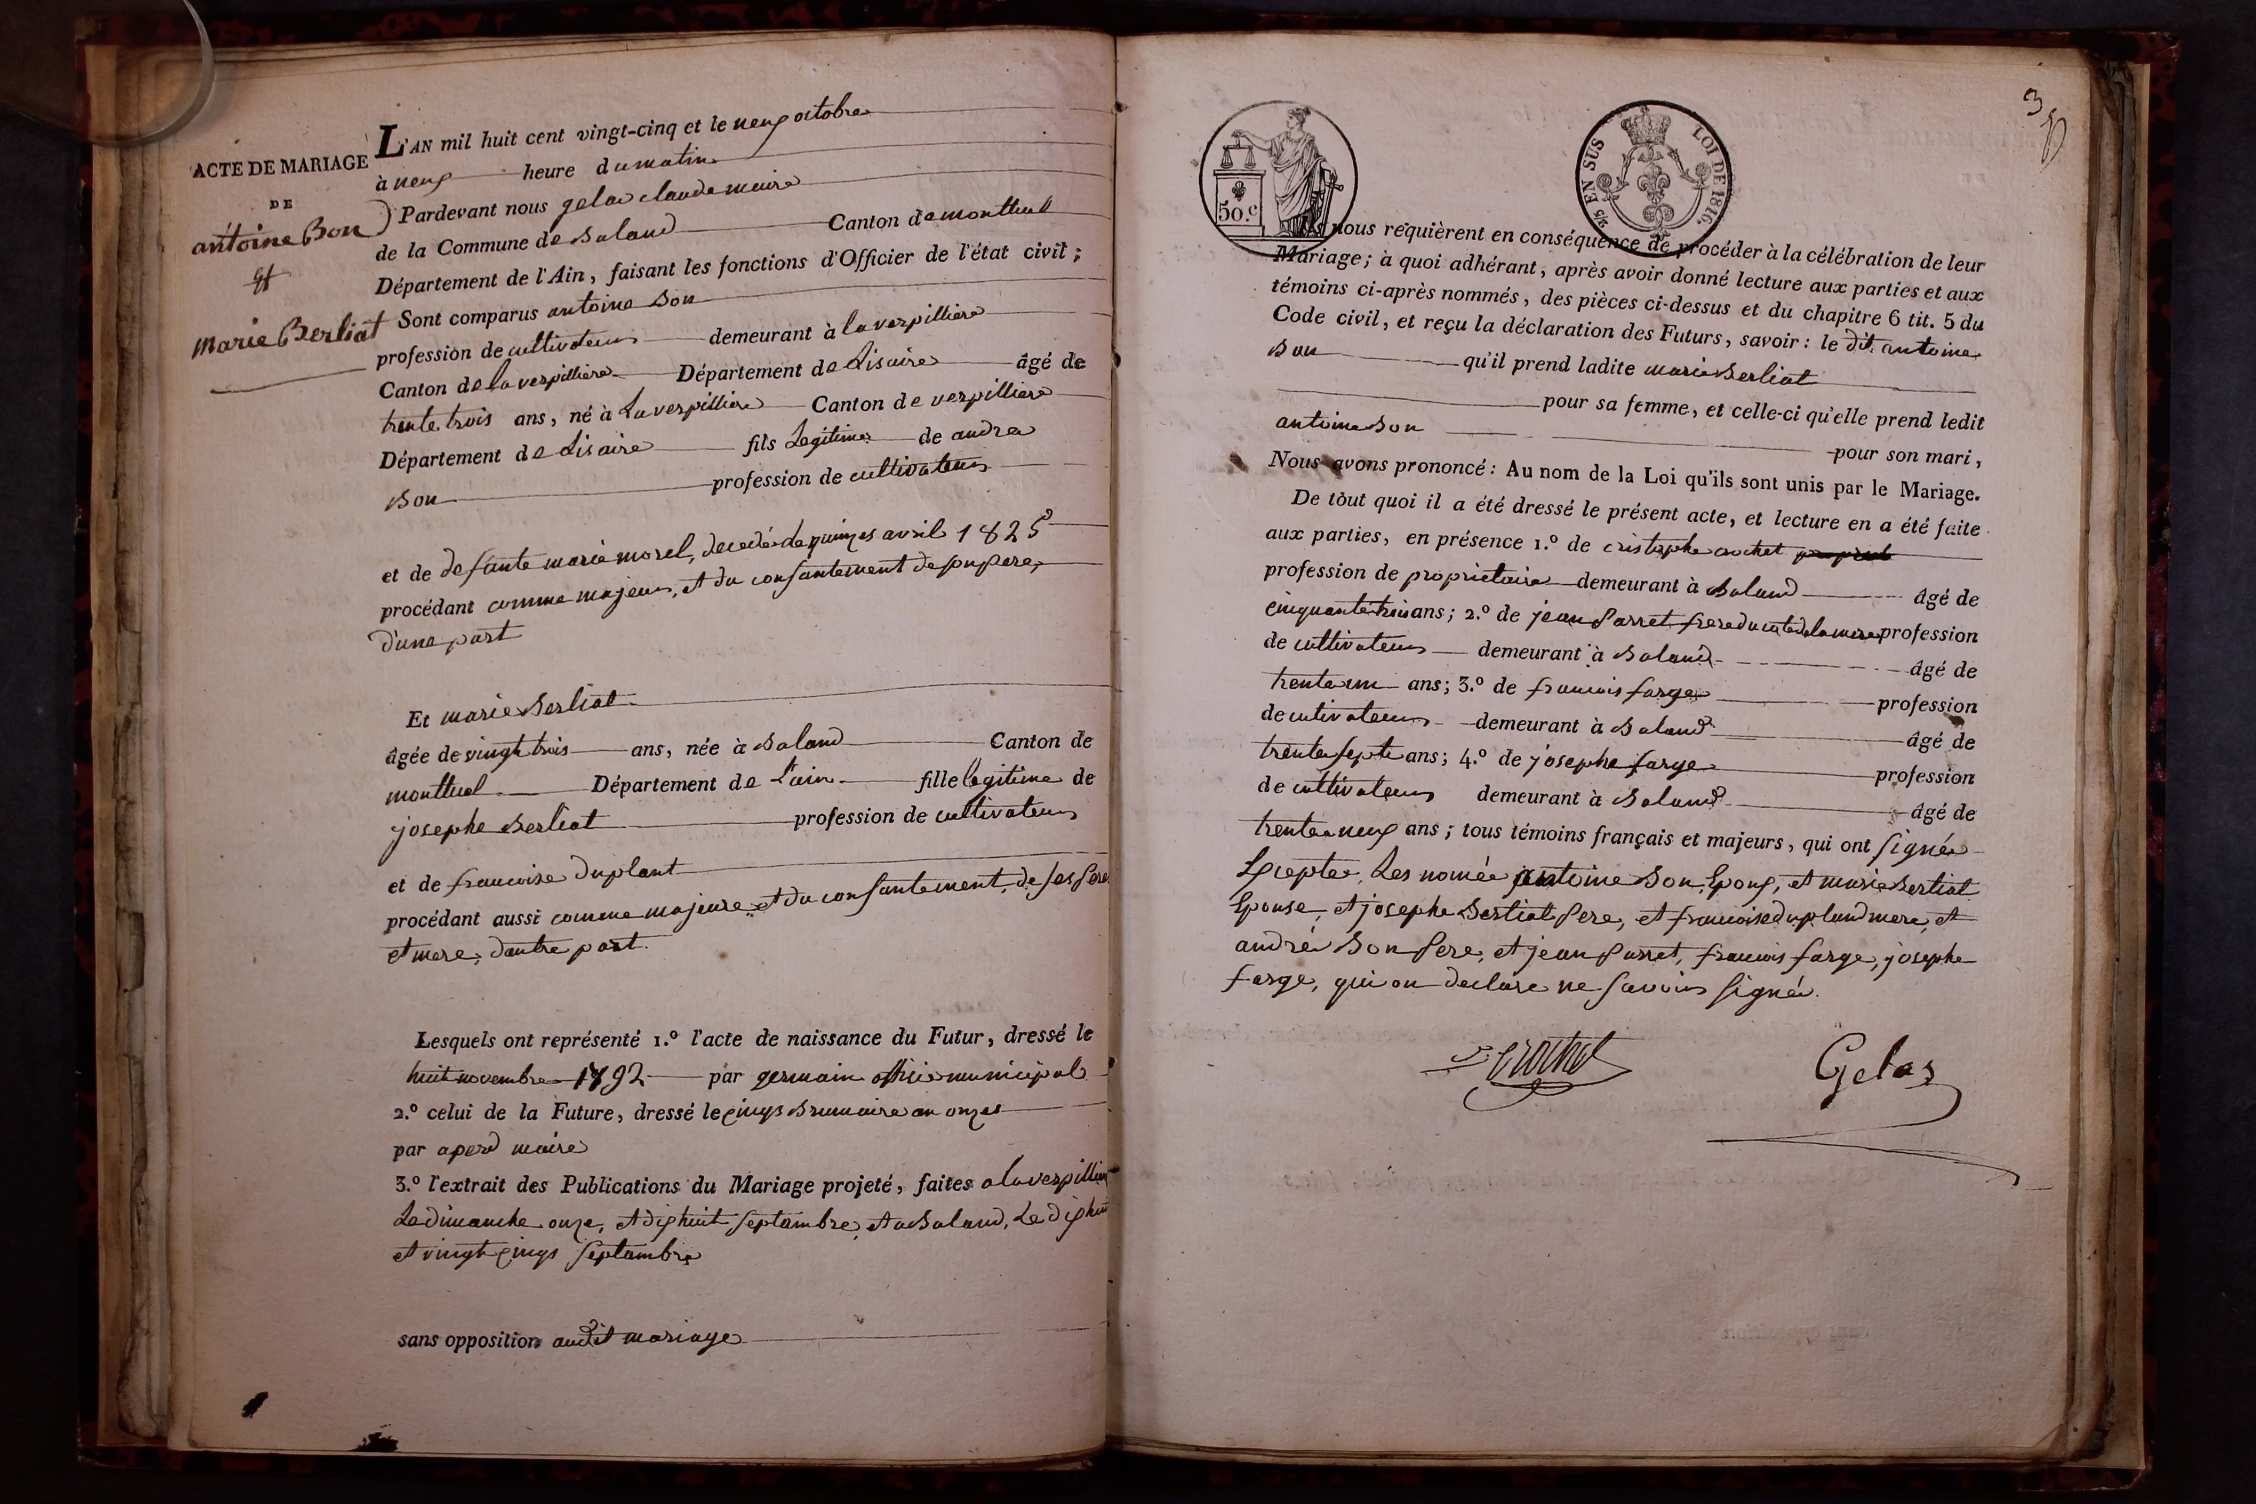 ACTE DE MARIAGE
DE
antoine Bon
et
marie Berliat
L'AN mil huit cent vingt-cinq et le neuf octobre
à neuf heure du matin
Pardevant nous gelas claude maire
de la Commune de Baland Canton de montluel
Département de l'Ain, faisant les fonctions d'Officier de l'état civil;
Sont comparus antoine Bon
profession de cultivateur demeurant à laverpilliere
Canton de la verpilliere Département de Lisaire âgé de
trente trois ans, né à Laverpilliere Canton de verpilliere
Département de Lisaire fils Legitime de andre
Bon profession de cultivateur
et de defante marie morel, decedée de quinzes avril 1825
procédant comme majeur, et du consantement de son pere,
d'une part
Et marie Berliat
âgée de vingt trois ans, née à Baland Canton de
montluel Département de L'ain fille legitime de
josephe Berliat profession de cultivateur
et de francoise duplant
procédant aussi comme majeure et du consantement de ses pere
et mere, dautre part.
Lesquels ont représenté 1.º l'acte de naissance du Futur, dressé le
huit novembre 1792 par germain officie municipal
2.º celui de la Future, dressé le cinqs Brumaire an onzes
par aperd maire
3.º l'extrait des Publications du Mariage projeté, faites a laverpilliere
Le dimanche onze, et dix huit septambre, et a Baland, Le dix huit
et vingt cinqs septambre
sans opposition audit mariage
3
50.c
5/5 EN SUS
LOI DE 1816.
Ils nous requièrent en conséquence de procéder à la célébration de leur
Mariage; à quoi adhérant, après avoir donné lecture aux parties et aux
témoins ci-après nommés, des pièces ci-dessus et du chapitre 6 tit. 5 du
Code civil, et reçu la déclaration des Futurs, savoir: le dit antoine
Bon qu'il prend ladite marie Berliat
pour sa femme, et celle-ci qu'elle prend ledit
antoine Bon
pour son mari,
Nous avons prononcé: Au nom de la Loi qu'ils sont unis par le Mariage.
De tout quoi il a été dressé le présent acte, et lecture en a été faite
aux parties, en présence 1.º de cristophe crochet
profession de proprietaire demeurant à Baland âgé de
cinquante trois ans; 2.º de jean parret frere du coté de la mere profession
de cultivateur demeurant à Baland âgé de
trente un ans; 3.º de francois farge profession
de cutivateur demeurant à Baland âgé de
trente septe ans; 4.º de josephe farge profession
de cultivateur demeurant à Baland âgé de
trente neuf ans; tous témoins français et majeurs, qui ont signé
Excepter, Les nomée antoine Bon, Epoux, et marie Berliat
Epouse, et josephe Berliat pere, et francoise dupland mere, et
andré Bon pere, et jean parret, francois farge, josephe
farge, qui on declare ne savoir signé.
Crochet
Gelas